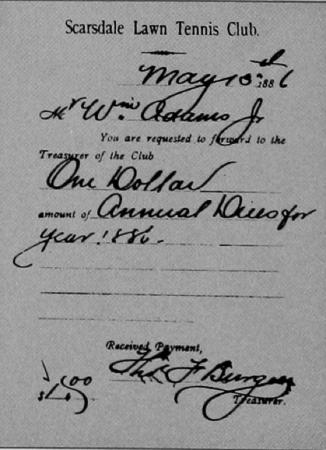 Scarsdale Lawn Tennis Club.
May 1886
Mr Wm Adams Jr
You are requested to forward to the
Treasurer of the Club
One Dollar
amount of Annual Dues for
year 1886.
Received Payment,
$1.00 F Burgess
Treasurer.